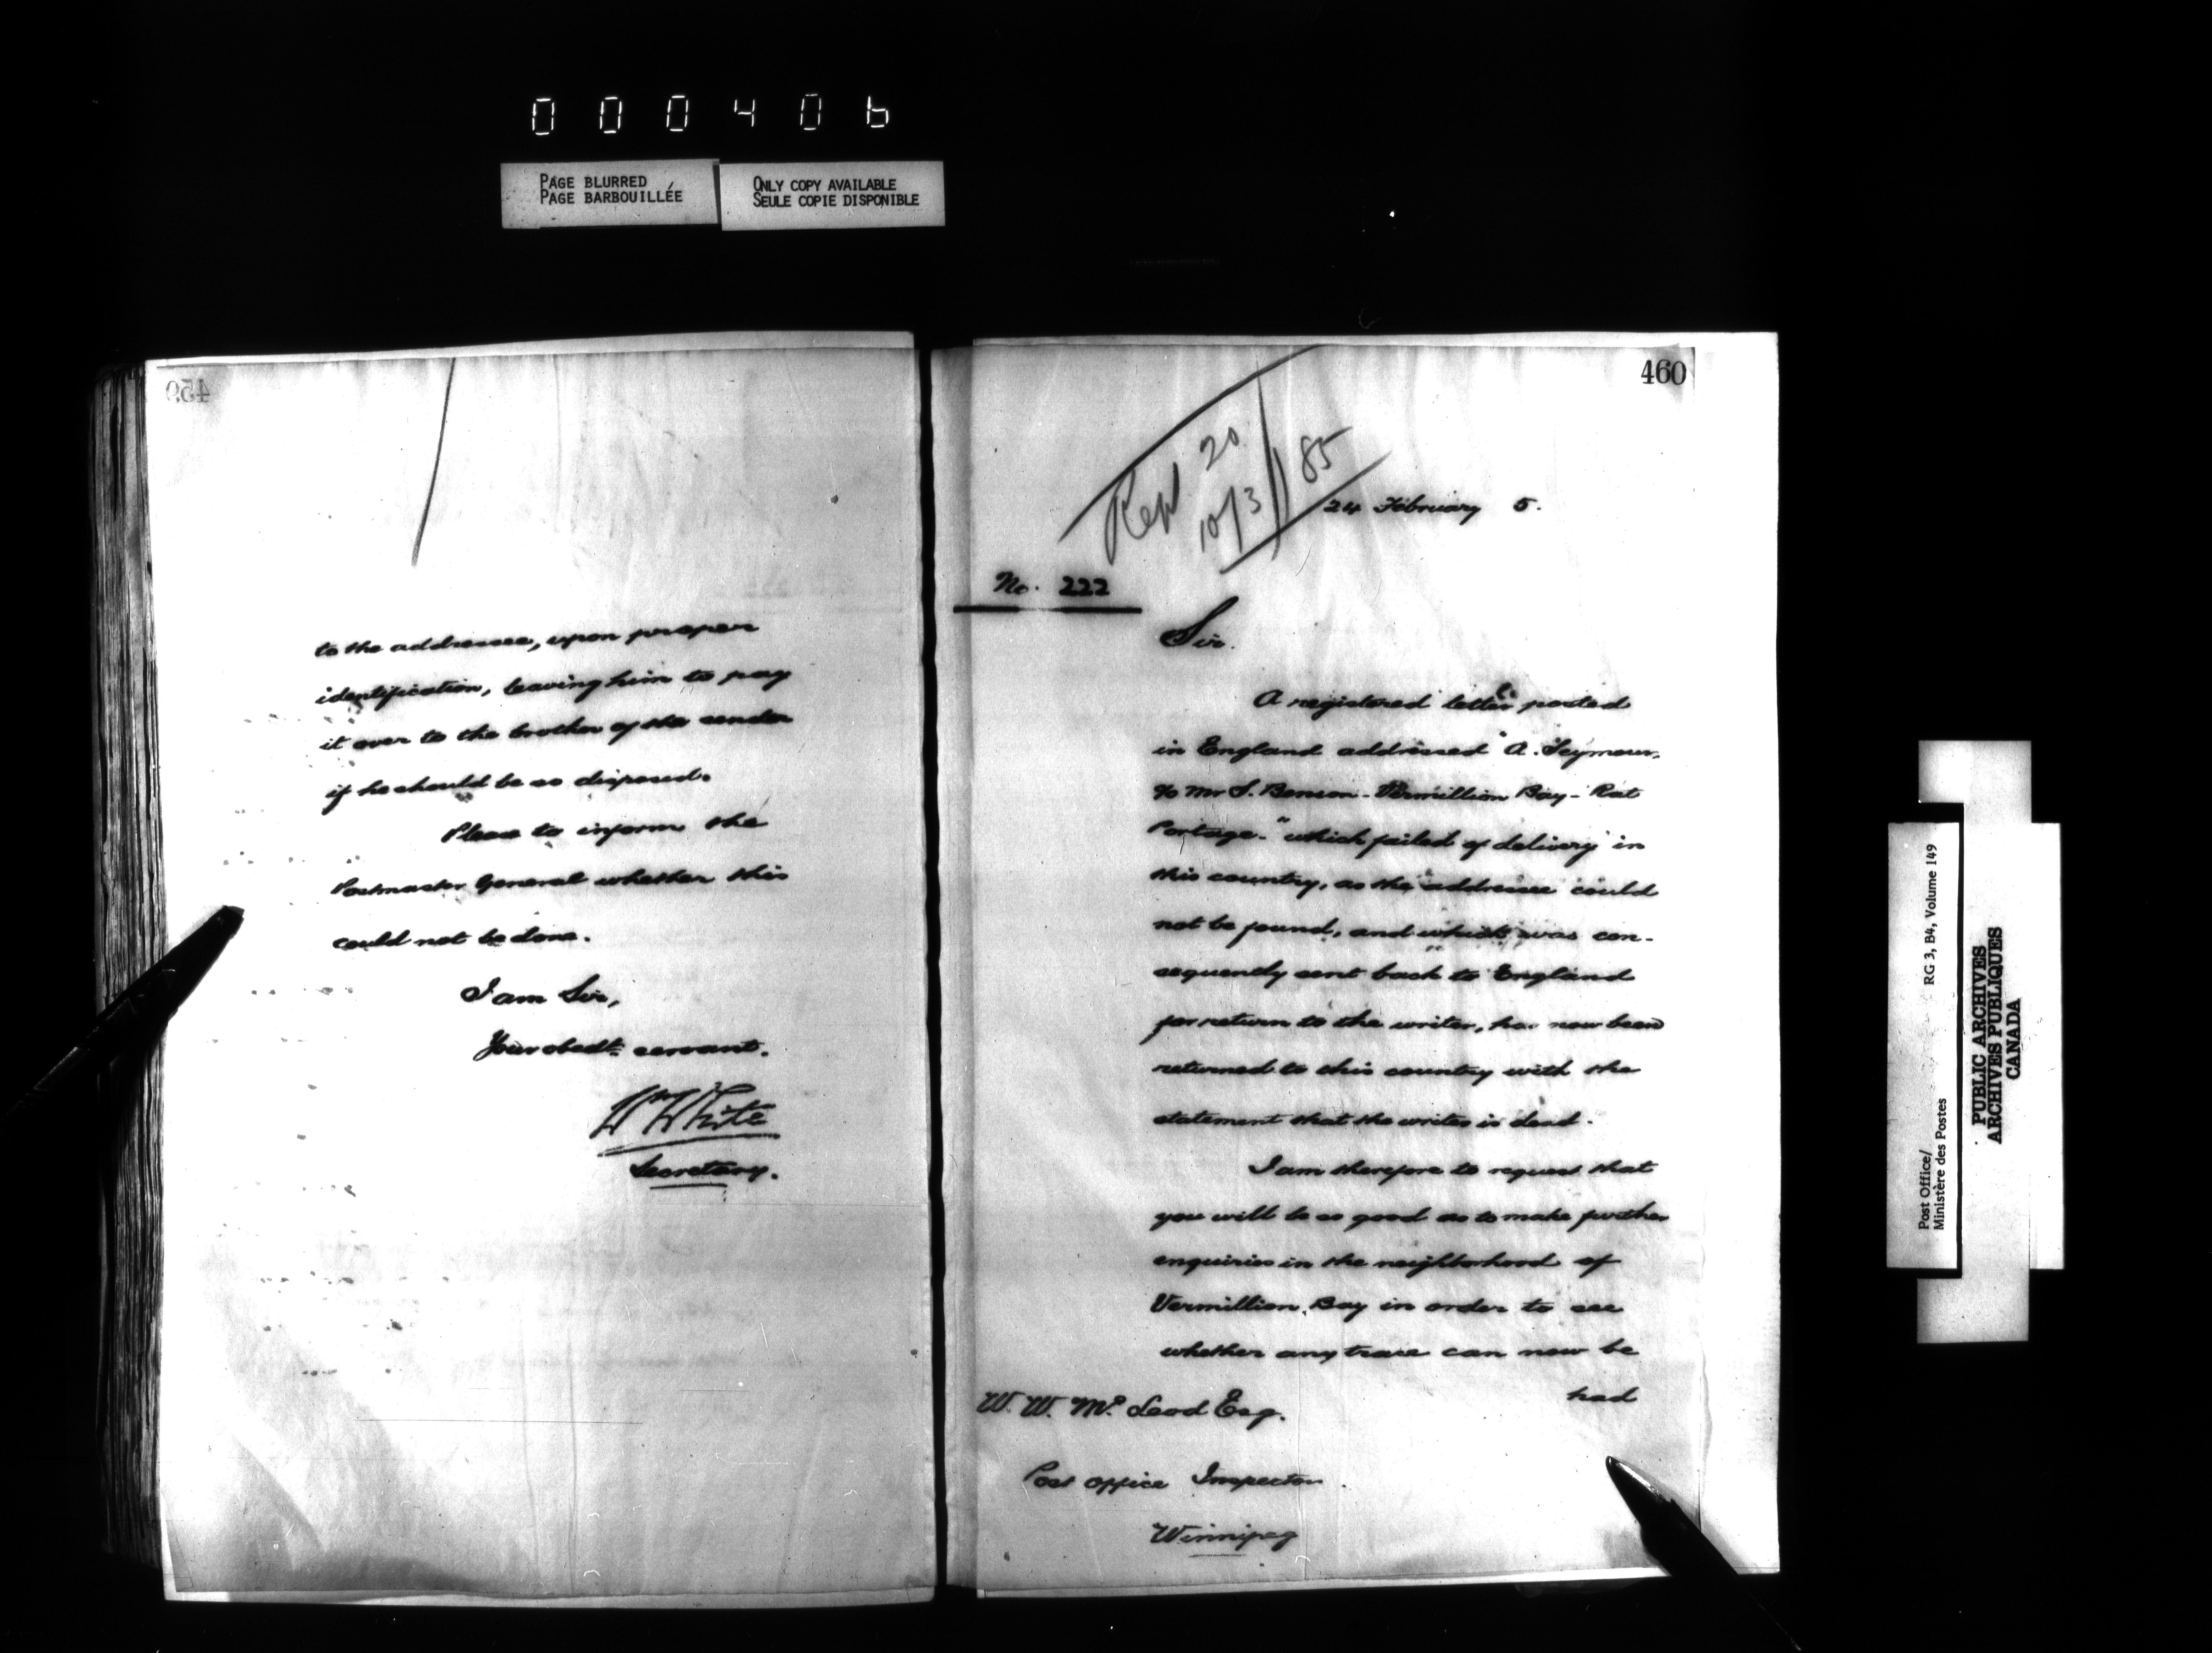 000406
PAGE BLURRED
PAGE BARBOUILLÉE
ONLY COPY AVAILABLE
SEULE COPIE DISPONIBLE
459
to the addressee, upon proper
identification, leaving him to pay
it over to the brother of the sender
if he should be so disposed.
Please to inform the
Postmaster General whether this
could not be done.
I am Sir,
Your obedt. servant.
Wm White
Secretary.
460
Repl 20
10/3/85
24 February 5.
No. 222
Sir.
A registered letter posted
in England addressed "A. Seymour,
c/o Mr S. Benson - Vermillion Bay - Rat
Portage-" which failed of delivery in
this country, as the addressee could
not be found, and which was con-
sequently sent back to England
for return to the writer, has now been
returned to this country with the
statement that the writer is dead.
I am therefore to request that
you will be so good as to make further
enquiries in the neighborhood of
Vermillion Bay in order to see
whether any trace can now be
had
W. W. Mc Leod Esq.
Post Office Inspector.
Winnipeg
Post Office/
Ministère des Postes
RG 3, B4, Volume 149
PUBLIC ARCHIVES
ARCHIVES PUBLIQUES
CANADA